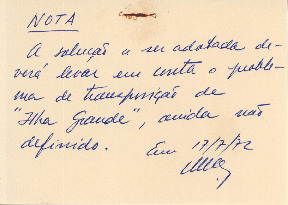 NOTA
A solução a ser adotada de-
verá levar em conta o proble-
ma de transposição de
"Ilha Grande", ainda não
definido.
Em 17/7/72